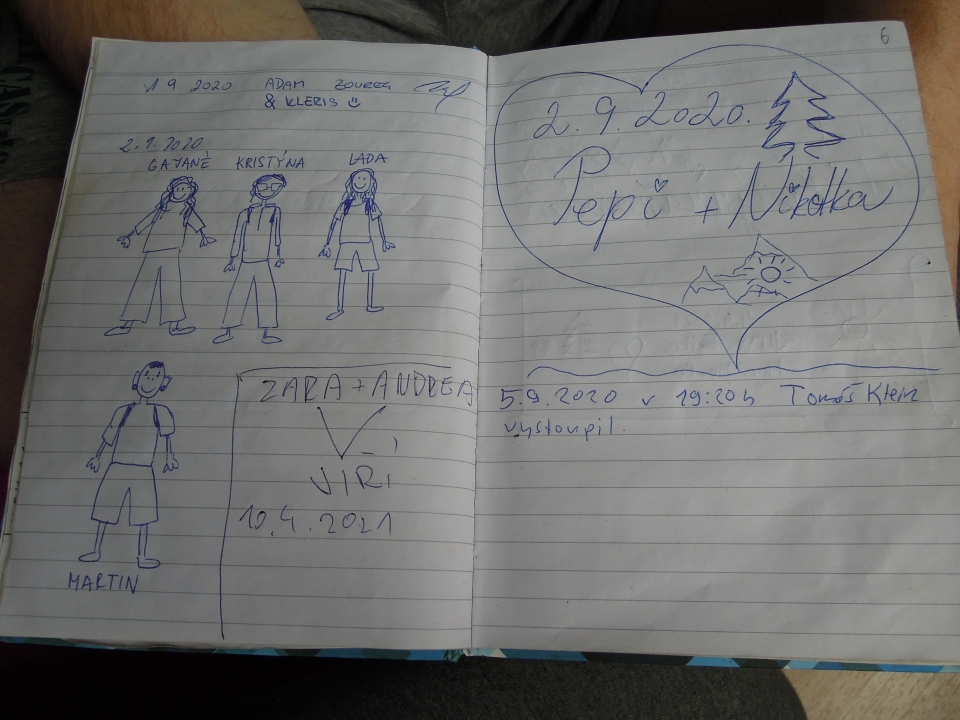 1 9 2020 ADAM
& KLERIS
2.9.2020
GAYANÉ KRISTÝNA LADA
MARTIN
ZARA + ANDREA
VÍŘÍ
10.4.2021
6
2.9.2020.
Pepi + Nikolka
5.9.2020 v 19:20h Tomáš Klein
vystoupil.